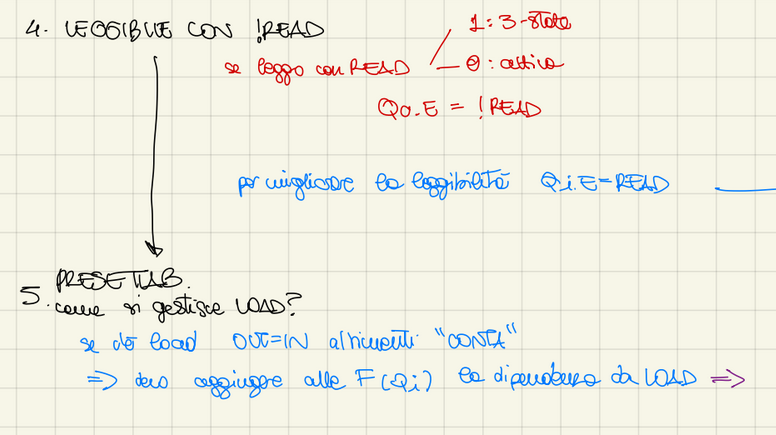 4. LEGGIBILE CON !READ
1: 3-state
se leggo con READ
0: attivo
Q0.E = !READ
per migliorare la leggibilità Qi.E=READ
PRESETTAB.
5. come si gestisce LOAD?
se do load OUT=IN altrimenti "CONTA"
=> devo aggiungere alle F(Qi) la dipendenza da LOAD =>